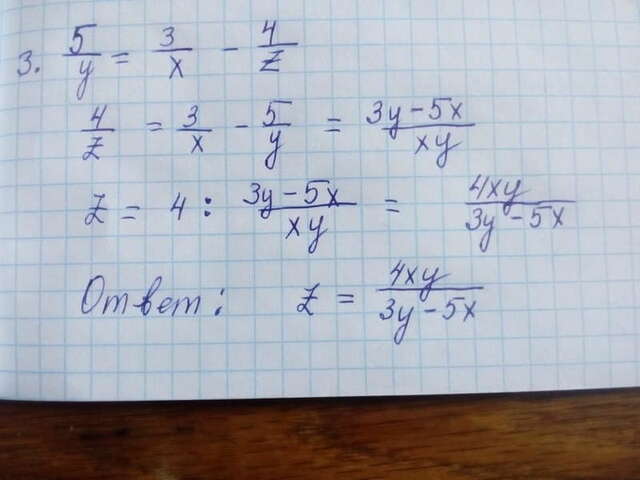 3. 5/y = 3/x - 4/z
4/z = 3/x - 5/y = (3y - 5x)/xy
z = 4 : (3y - 5x)/xy = 4xy/(3y - 5x)
Ответ: z = 4xy/(3y - 5x)